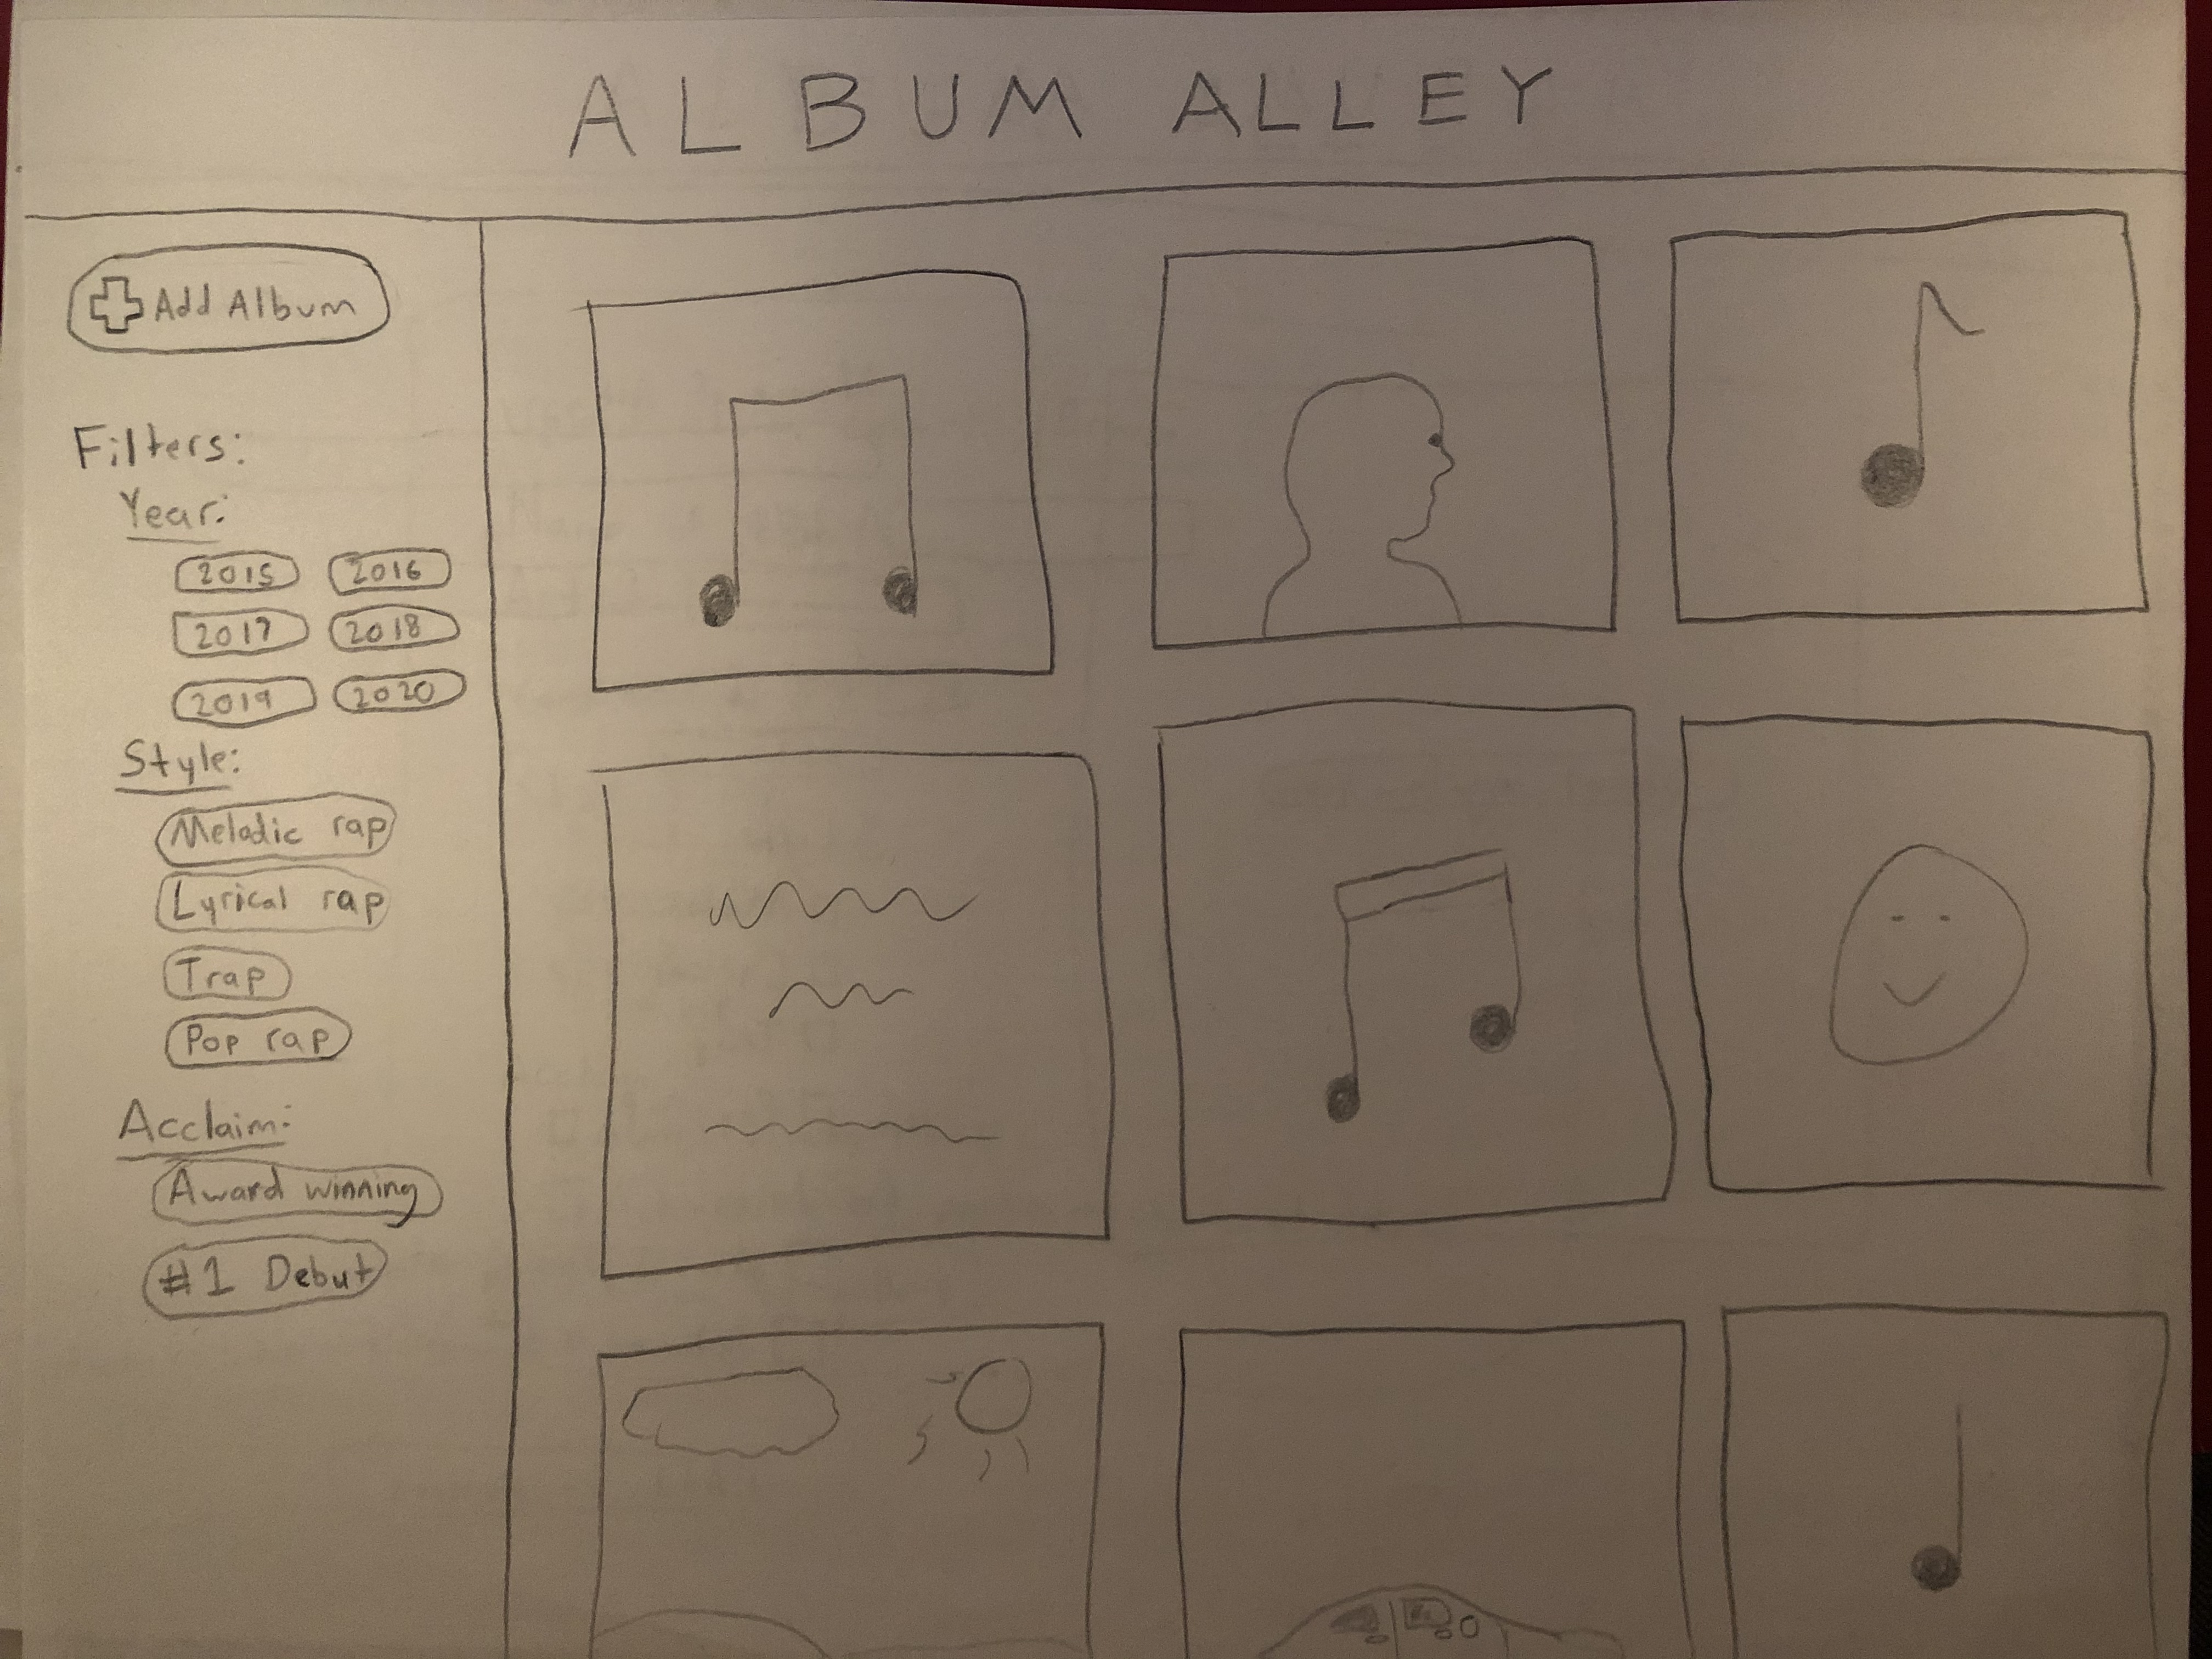 ALBUM ALLEY
Add Album
Filters:
Year:
2015 2016
2017 2018
2019 2020
Style:
Melodic rap
Lyrical rap
Trap
Pop rap
Acclaim:
Award winning
#1 Debut